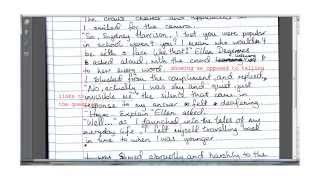 The crowd cheered and applauded as
I smiled for the camera.
"So, Sydney Harrison, I bet you were popular
in school weren't you? I mean who wouldn't
be with a face like that!" Ellen Degeneres
asked aloud with the crowd
to her every word. showing as opposed to telling
I blushed from the compliment and replied,
"No, actually I was shy and quiet, just
invisible." the silence that came in
links to
the question
response to my answer felt deafening.
"Hope. Explain" Ellen asked.
"Well..." as I launched into the tales of my
everyday life, I felt myself travelling back
in time to when I was younger.
I was shoved abruptly and harshly to the